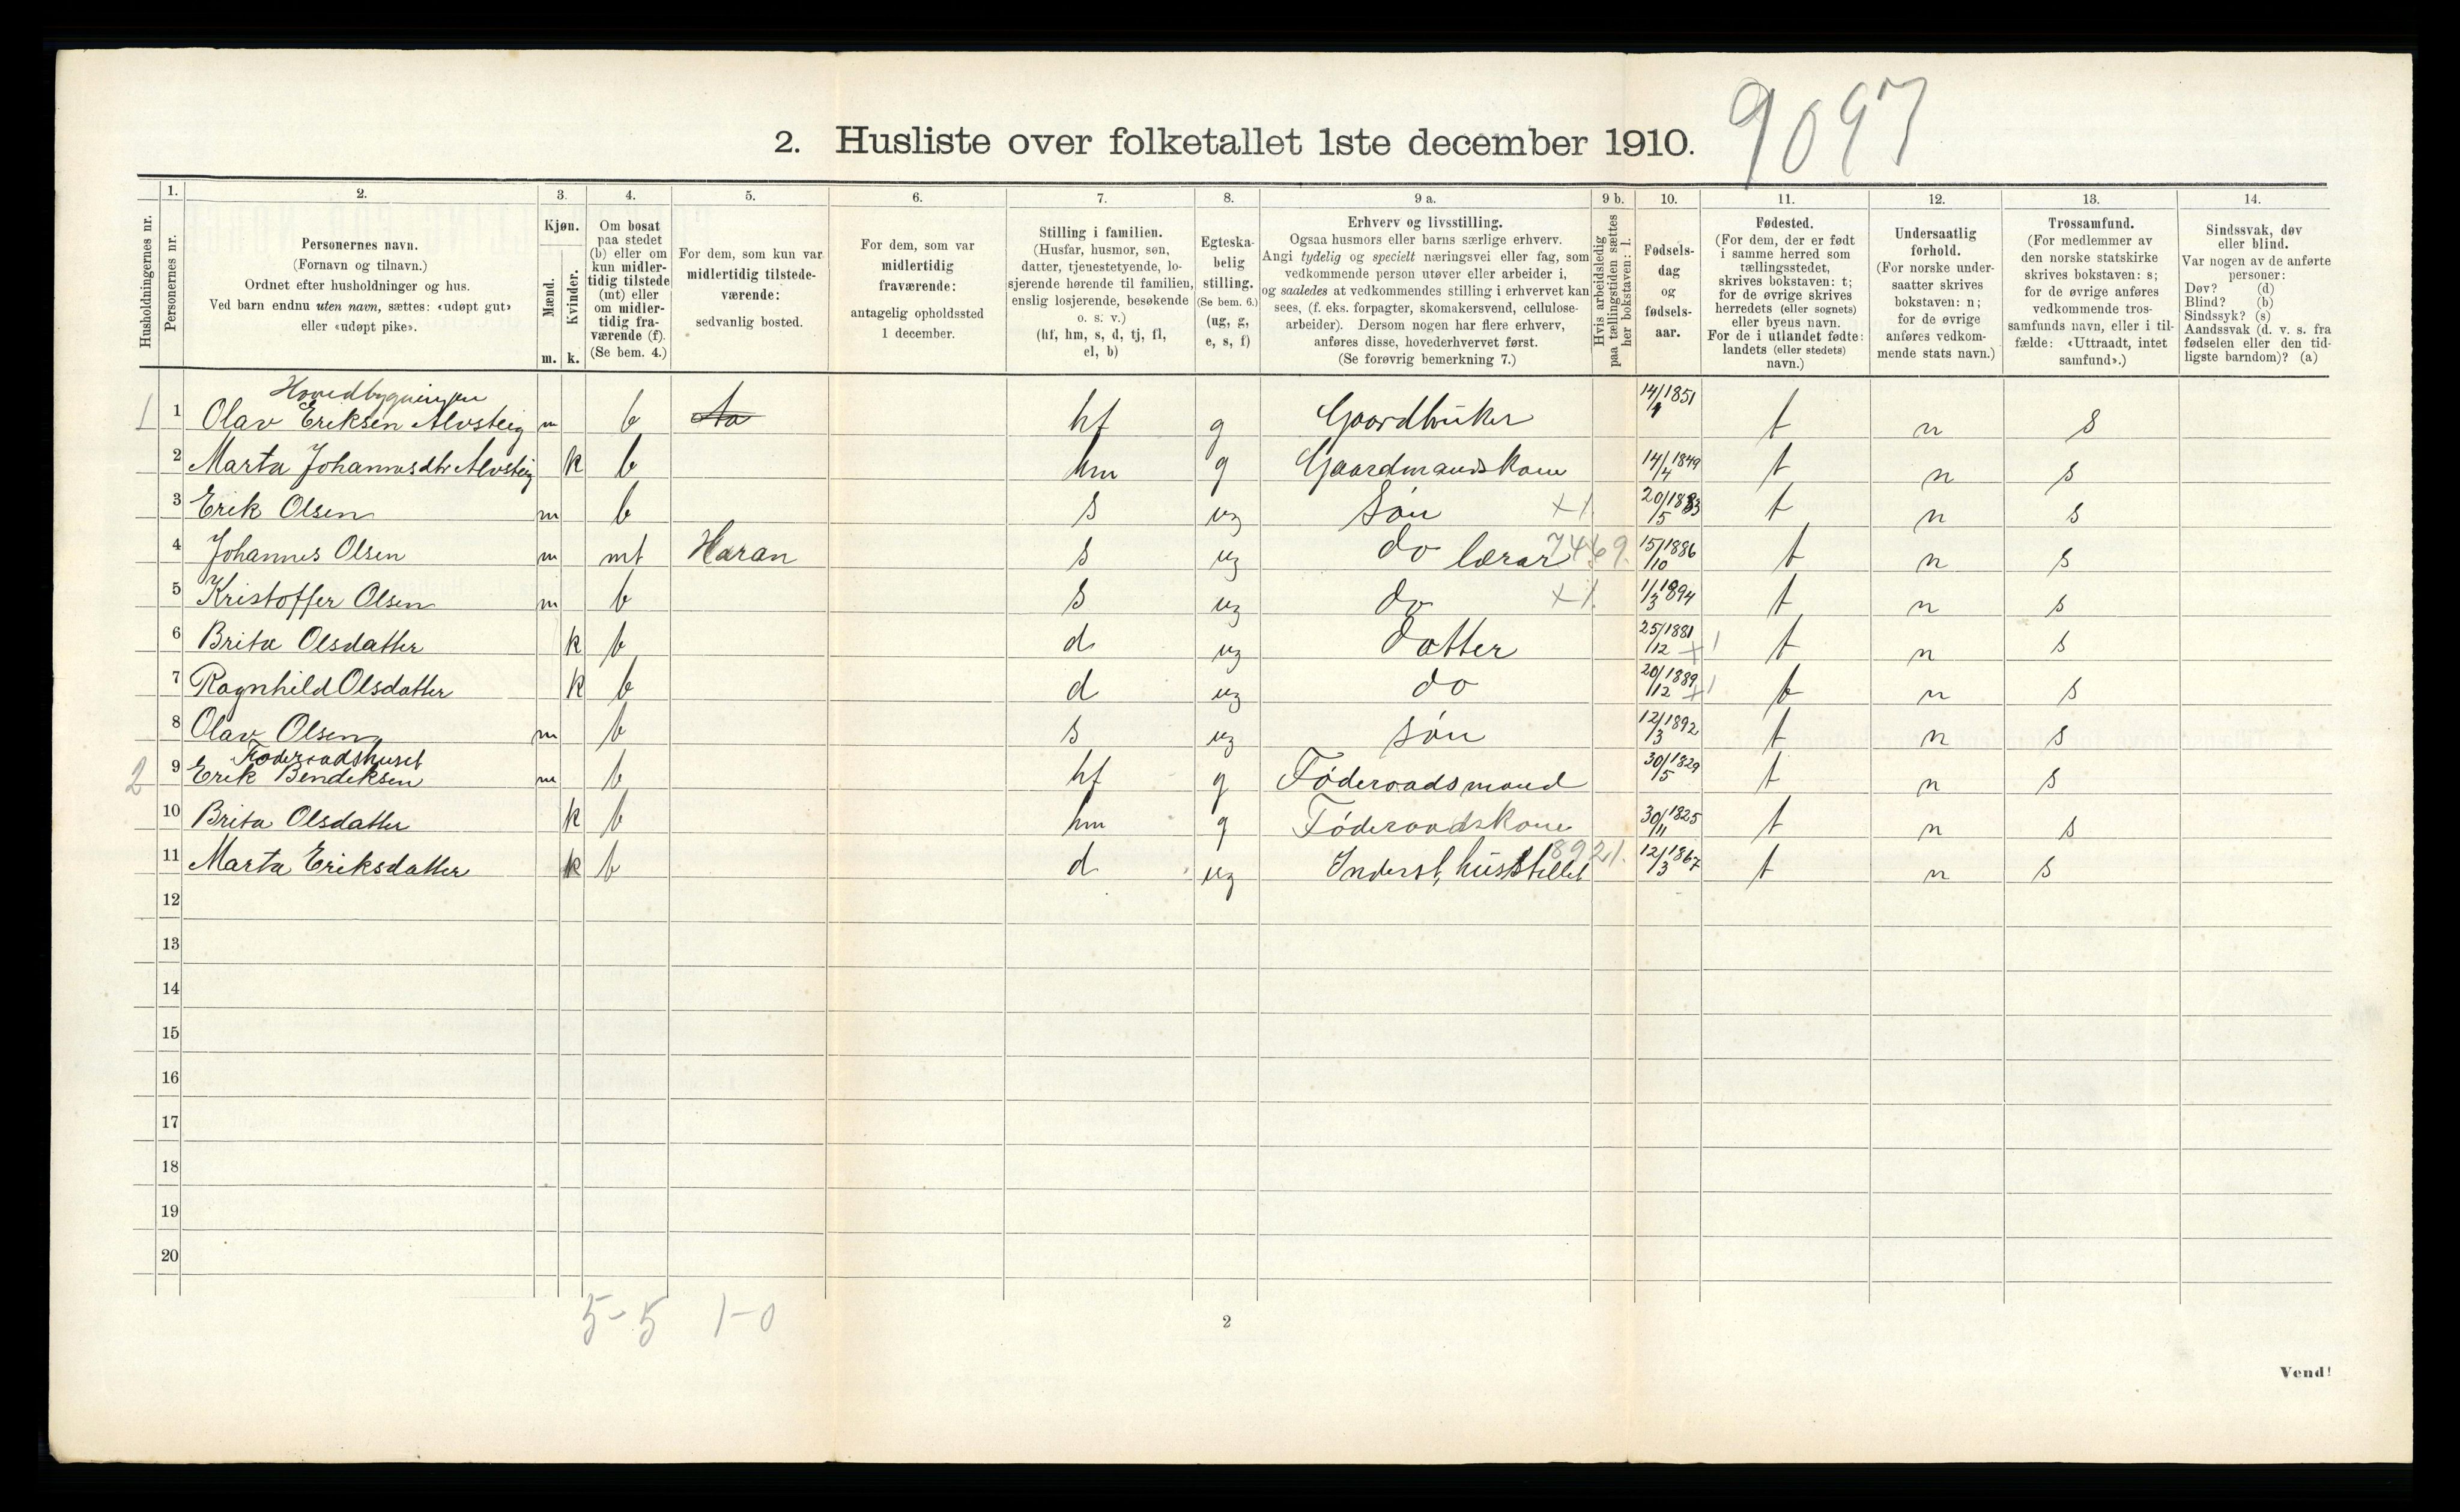 9097
2. Husliste over folketallet 1ste december 1910.
Husholdningernes nr.
1.
Personernes nr.
2.
Personernes navn.
(Fornavn og tilnavn.)
Ordnet efter husholdninger og hus.
Ved barn endnu uten navn, sættes: «udøpt gut»
eller «udøpt pike».
3.
Kjøn.
Mænd.
Kvinder.
m. k.
4.
Om bosat
paa stedet
(b) eller om
kun midler-
tidig tilstede
(mt) eller
om midler-
tidig fra-
værende (f).
(Se bem. 4.)
5.
For dem, som kun var
midlertidig tilstede-
værende:
sedvanlig bosted.
6.
For dem, som var
midlertidig
fraværende:
antagelig opholdssted
1 december.
7.
Stilling i familien.
(Husfar, husmor, søn,
datter, tjenestetyende, lo-
sjerende hørende til familien,
enslig losjerende, besøkende
o. s. v.)
(hf, hm, s, d, tj, fl,
el, b)
8.
Egteska-
belig
stilling.
(Se bem. 6.)
(ug, g,
e, s, f)
9 a.
Erhverv og livsstilling.
Ogsaa husmors eller barns særlige erhverv.
Angi tydelig og specielt næringsvei eller fag, som
vedkommende person utøver eller arbeider i,
og saaledes at vedkommendes stilling i erhvervet kan
sees, (f. eks. forpagter, skomakersvend, cellulose-
arbeider). Dersom nogen har flere erhverv,
anføres disse, hovederhvervet først.
(Se forøvrig bemerkning 7.)
9 b.
Hvis arbeidsledig
paa tællingstiden sættes
her bokstaven: l.
10.
Fødsels-
dag
og
fødsels-
aar.
11.
Fødested.
(For dem, der er født
i samme herred som
tællingsstedet,
skrives bokstaven: t;
for de øvrige skrives
herredets (eller sognets)
eller byens navn.
For de i utlandet fødte:
landets (eller stedets)
navn.)
12.
Undersaatlig
forhold.
(For norske under-
saatter skrives
bokstaven: n;
for de øvrige
anføres vedkom-
mende stats navn.)
13.
Trossamfund.
(For medlemmer av
den norske statskirke
skrives bokstaven: s;
for de øvrige anføres
vedkommende tros-
samfunds navn, eller i til-
fælde: «Uttraadt, intet
samfund».)
14.
Sindssvak, døv
eller blind.
Var nogen av de anførte
personer:
Døv? (d)
Blind? (b)
Sindssyk? (s)
Aandssvak (d. v. s. fra
fødselen eller den tid-
ligste barndom)? (a)
Hovedbygningen
1 1 Olav Eriksen Alvsteig m b hf g Gaardbruker 14/4 1851 t n s
2 Marta Johannesdtr Alvsteig k b hm g Gaardmandskone 14/4 1849 t n s
3 Erik Olsen m b s ug Søn 20/5 1883 t n s
4 Johannes Olsen m mt Haran s ug do lærar 7469. 15/10 1886 t n s
5 Kristoffer Olsen m b s ug do 1/3 1894 t n s
6 Brita Olsdatter k b d ug Datter 25/12 1881 t n s
7 Ragnhild Olsdatter k b d ug do 20/12 1889 t n s
8 Olav Olsen m b s ug søn 12/3 1892 t n s
Føderaadshuset
2 9 Erik Bendiksen m b hf g Føderaadsmand 30/5 1829 t n s
10 Brita Olsdatter k b hm g Føderaadskone 30/11 1825 t n s
11 Marta Eriksdatter k b d ug Inderst, husstellet 8921. 12/3 1867 t n s
12
13
14
15
16
17
18
19
20
5-5 1-0
2
Vend!